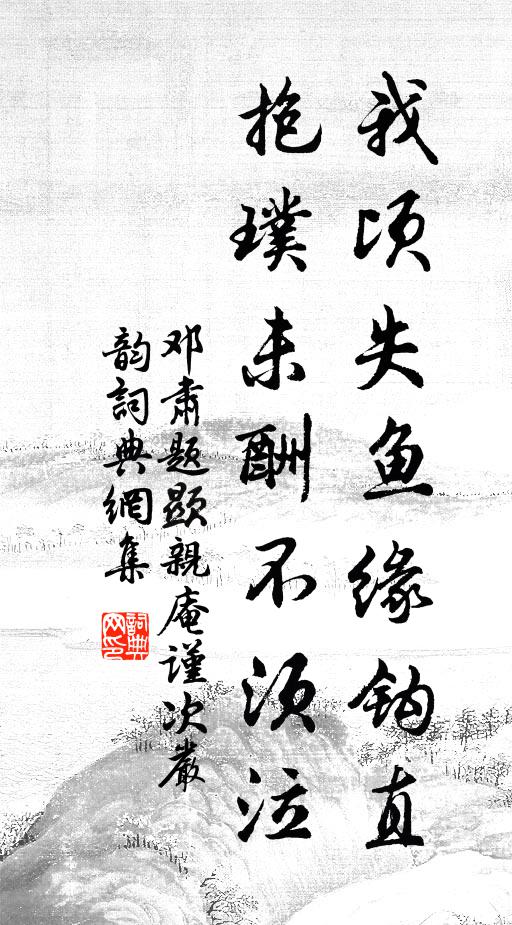 我顷失鱼缘钩直
抱璞未酬不须泣
邓肃题显亲庵谨次严
韵词典網集
詞典网印